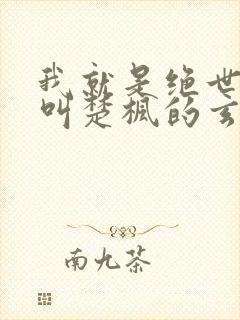 我就是绝世
叫楚枫的玄
南九茶